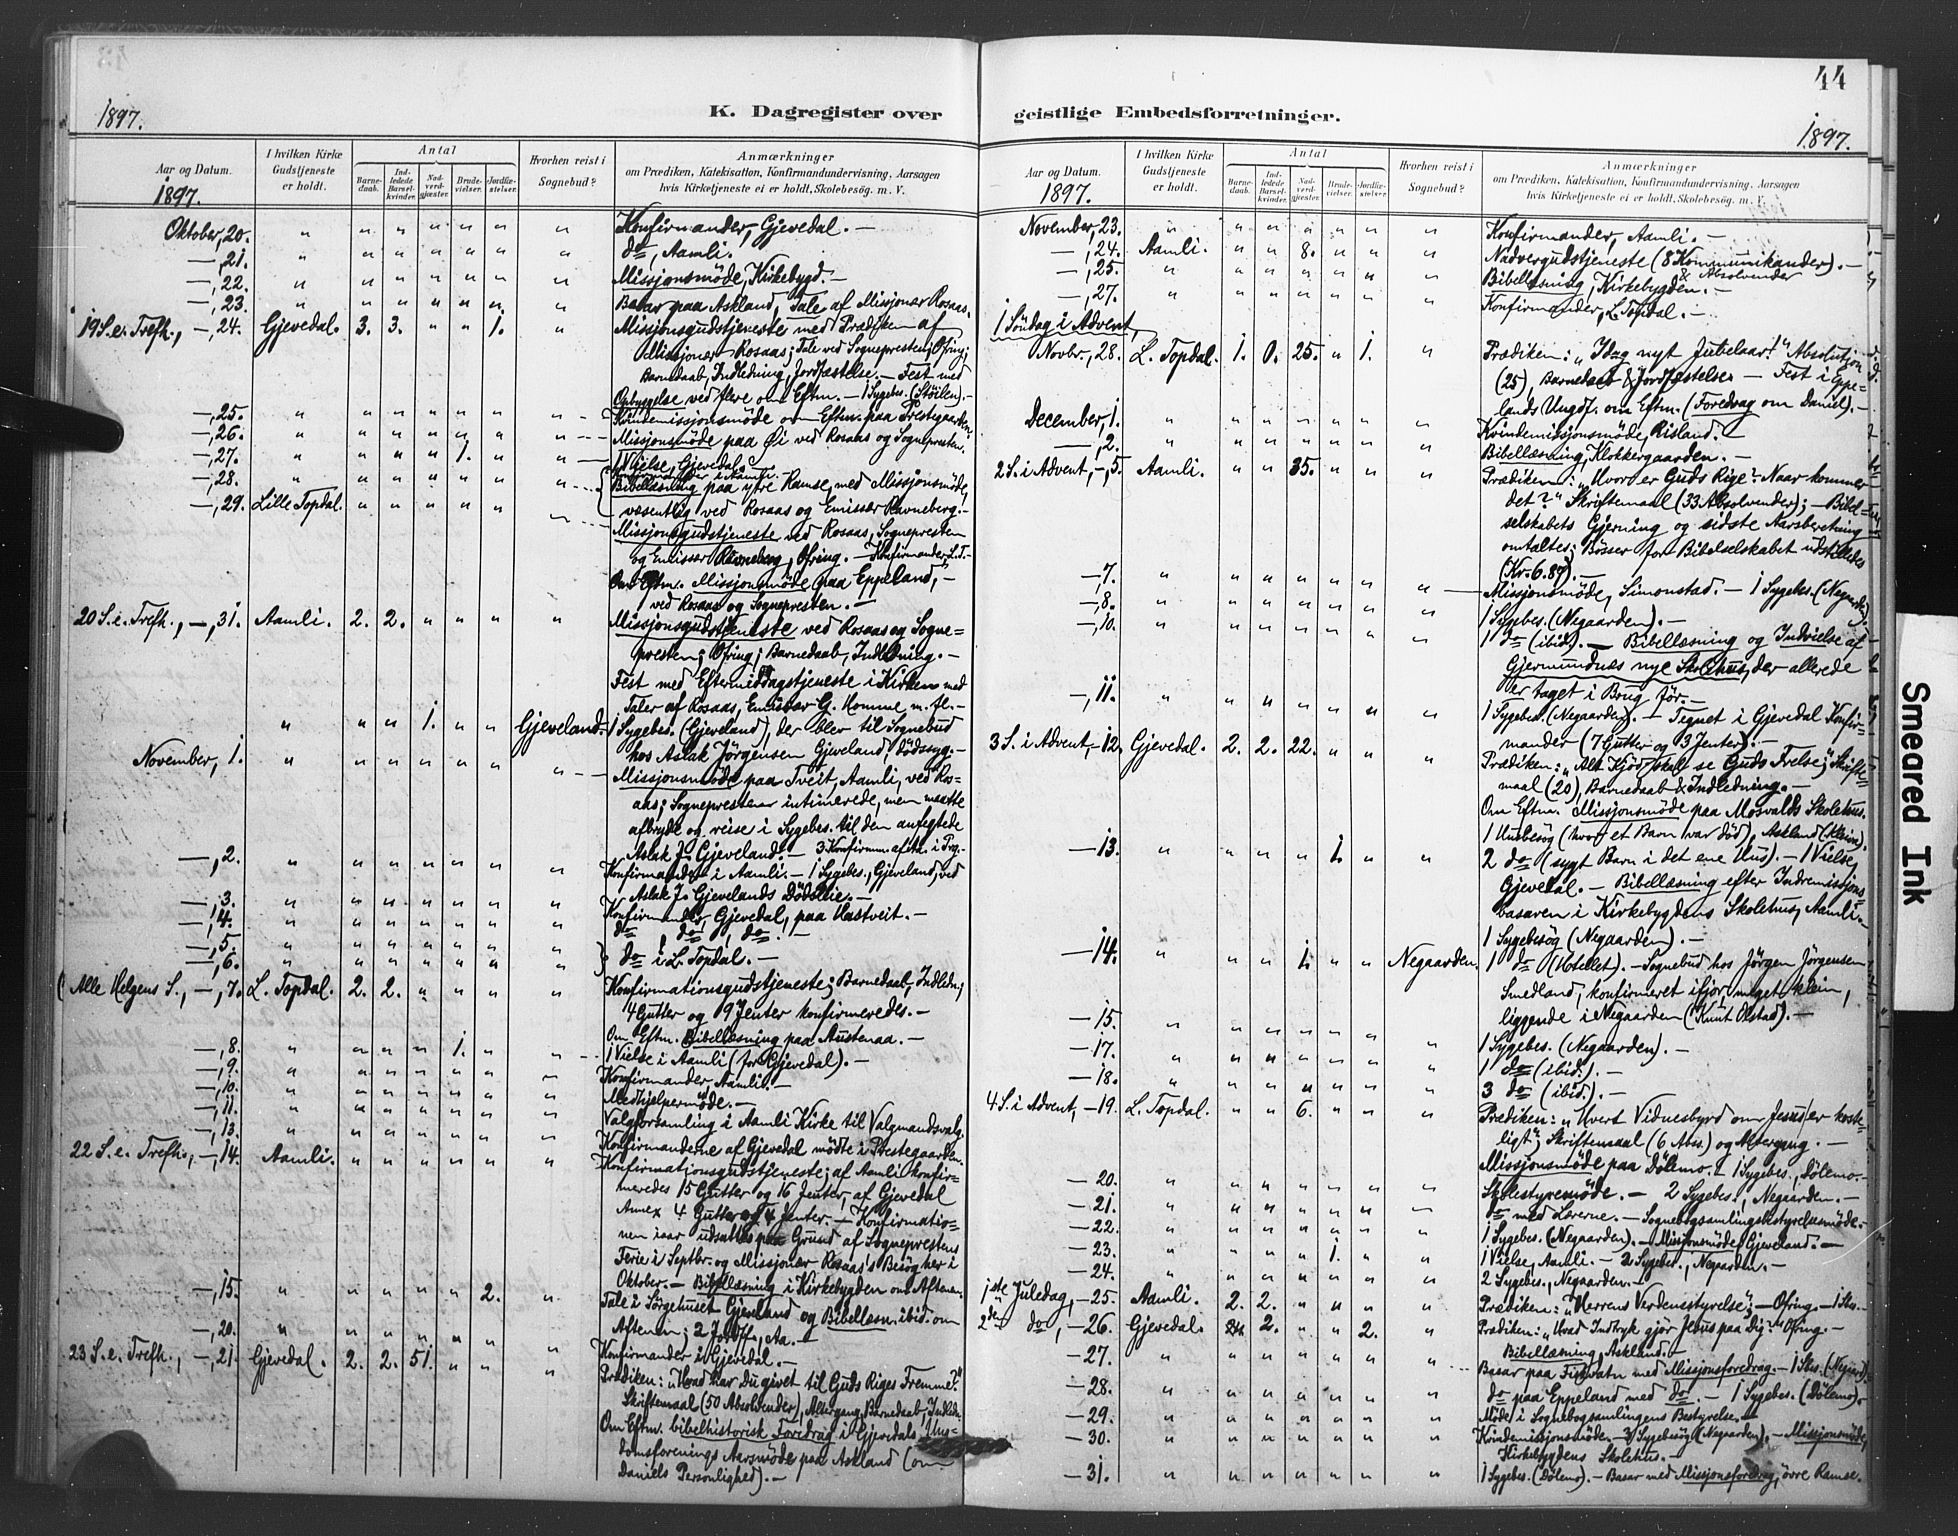 44
1897.
K. Dagregister over geistlige Embedsforretninger.
1897.
Aar og Datum.
1897.
I hvilken Kirke Gudstjeneste er holdt.
Antal
Barnedaab.
Indledede Barselkvinder.
Nadverdgjæster.
Brudevielser.
Jordfæstelser.
Hvorhen reist i Sognebud?
Anmærkninger
om Prædiken, Katekisation, Konfirmandundervisning, Aarsagen
hvis Kirketjeneste ei er holdt, Skolebesøg. m. V.
Oktober, 20. " " " " " " " Konfirmander, Gjevedal. —
—, 21. " " " " " " " do, Aamli. —
—, 22. " " " " " " " Missjonsmöde, Kirkebygd. —
—, 23. " " " " " " " Basar paa Askland, Tale af Missjonær Rosaas.
19 S. e. Trefh., —, 24. Gjevedal. 3. 3. " " 1. " Missjonsgudstjeneste med Prædiken af
Missjonær Rosaas; Tale ved Sognepresten; Ofring;
Barnedaab, Indledning, Jordfæstelse. — Fest med
Opbyggelse ved flere om Eftm. — 1 Sygebes. (Stöilen). —
—, 25. " " " " " " " Kvindemissjonsmöde om Eftm. paa Prestegaarden.
—, 26. " " " " " " " Missjonsmöde paa Öi ved Rosaas og Sognepresten.
—, 27. " " " " 1. " " 1 Vielse, Gjevedal.
—, 28. " " " " " " " Bibellæsning paa ytre Ramse, med Missjonsmöde,
væsentlig ved Rosaas og Emissær Ravneberg. —
—, 29. Lille Topdal. " " " " " " Missjonsgudstjeneste ved Rosaas, Sognepresten
og Emissær Ravneberg, Ofring. — Konfirmander, L. T. —
Om Eftm. Missjonsmöde paa Eppeland, —
ved Rosaas og Sognepresten. —
20 S. e. Trefh., —, 31. Aamli. 2. 2. " " " " Missjonsgudstjeneste ved Rosaas og Sogne=
presten; Ofring; Barnedaab, Indledning. —
Fest med Eftermiddagstjeneste i Kirken med
Taler af Rosaas, Emissær G. Homme m. fl. —
" " " 1. " " Gjeveland. 1 Sygebes. (Gjeveland), der blev til Sognebud
hos Aslak Jörgensen Gjeveland dödssyg. —
November, 1. " " " " " " " Missjonsmöde paa Tveit, Aamli, ved Ros=
aas; Sognepresten intimerede, men maatte
afbryde og reise i Sygebes. til den anfegtede
Aslak Js. Gjeveland. —
—, 2. " " " " " " " Konfirmander i Aamli. — 1 Sygebes., Gjeveland, ved
Aslak Js. Gjevelands Dödsleie. —
—, 3. " " " " " " " Konfirmander, Gjevedal, paa Hastveit. —
—, 4. " " " " " " " do, do, do. —
—, 5. " " " " " " "
—, 6. " " " " " " " do i L. Topdal. —
Alle Helgens S., —, 7. L. Topdal. 2. 2. " " " " Konfirmationsgudstjeneste; Barnedaab, Indledn.;
4 Gutter og 9 Jenter konfirmeredes. —
Om Eftm. Bibellæsning paa Austenaa. —
—, 8. " " " " 1. " " 1 Vielse i Aamli (for Gjevedal). —
—, 9. " " " " " " " Konfirmander, Aamli. —
—, 10. " " " " " " " Medhjelpermöde. —
—, 11. " " " " " " " Valgforsamling i Aamli Kirke til Valgmandsvalg.
—, 13. " " " " " " " Konfirmanderne af Gjevedal mödte i Prestegaarden.
22 S. e. Trefh., —, 14. Aamli. " " " " " " Konfirmationsgudstjeneste; af Aamli konfir=
meredes 15 Gutter og 16 Jenter, af Gjevedal
Annex 4 Gutter og 4 Jenter. — Konfirmatio=
nen iaar udsattes paa Grund af Sogneprestens
Ferie i Septbr. og Missjonær Rosaas's Besög her i
Oktober. — Bibellæsning i Kirkebygden om Aftenen.
—, 15. " " " " " 2. " Tale i Sörgehuset Gjeveland og Bibellæsn. ibid. om
Aftenen; 2 Jordf., Aa. —
—, 20. " " " " " " " Konfirmander i Gjevedal. —
23 S. e. Trefh., —, 21. Gjevedal. 2. 2. 51. " " " Prædiken: „Hvad har Du givet til Guds Riges Fremme?"
Skriftemaal (50 Absolvender), Altergang, Barnedaab, Indledn.
Om Eftm. bibelhistorisk Foredrag i Gjevedals Ung=
domsforenings Aarsmöde paa Askland (om
Daniels Personlighed). —
Aar og Datum.
1897.
I hvilken Kirke Gudstjeneste er holdt.
Antal
Barnedaab.
Indledede Barselkvinder.
Nadverdgjæster.
Brudevielser.
Jordfæstelser.
Hvorhen reist i Sognebud?
Anmærkninger
om Prædiken, Katekisation, Konfirmandundervisning, Aarsagen
hvis Kirketjeneste ei er holdt, Skolebesøg. m. V.
November, 23. " " " " " " " Konfirmander, Aamli. —
—, 24. Aamli. " " 8. " " " Nadvergudstjeneste (8 Kommunikander). —
& Absolvender
—, 25. " " " " " " " Bibellæsning, Kirkebygden. —
—, 27. " " " " " " " Konfirmander, L. Topdal. —
1 Söndag i Advent,
Novbr., 28. L. Topdal. 1. 0. 25. " 1. " Prædiken: „Idag nyt Jubelaar!" Absolutjon
(25), Barnedaab & Jordfæstelse. — Fest i Eppe=
lands Ungdf. om Eftm. (Foredrag om Daniel). —
December, 1. " " " " " " " Kvindemissjonsmöde, Risland. —
—, 2. " " " " " " " Bibellæsning, Klokkergaarden. —
2 S. i Advent, —, 5. Aamli. " " 35. " " " Prædiken: „Hvor er Guds Rige? Naar kommer
det?" Skriftemaal (33 Absolvender); — Bibel=
selskabets Gjerning og sidste Aarsberetning
omtaltes; Bösser for Bibelselskabet udstilledes
(Kr. 6.87). —
—, 7. " " " " " " " Missjonsmöde, Simonstad. — 1 Sygebes. (Negaarden).
—, 8. " " " " " " " 1 Sygebes. (Negaarden). —
—, 10. " " " " " " " 1 do (ibid). — Bibellæsning og Indvielse af
Gjermundnes nye Skolehus, der allerede
er taget i Brug för. —
—, 11. " " " " " " " 1 Sygebes. (Negaarden). — Tegnet i Gjevedal Konfir=
mander (7 Gutter og 3 Jenter). —
3 S. i Advent, —, 12. Gjevedal. 2. 2. 22. " " " Prædiken: „Alt Kjöd skal se Guds Frelse"; Skrifte=
maal (20), Barnedaab & Indledning. —
Om Eftm. Missjonsmöde paa Mosvalds Skolehus.
1 Husbesög (hvor et Barn var död), Askland (Kleiva).
—13. " " " " 1. " " 2 do (sygt Barn i det ene Hus). — 1 Vielse,
Gjevedal. — Bibellæsning efter Indremissjons
basaren i Kirkebygdens Skolehus, Aamli. —
1 Sygebesög (Negaarden). —
—14. " " " 1. " " Negaarden. 1 do (Hotellet). — Sognebud hos Jörgen Jörgensen
Smedland, konfirmeret ifjor, meget klein,
liggende i Negaarden (Knut Olstad). —
—15. " " " " " " " 1 Sygebes. (Negaarden). —
—17. " " " " " " " 1 do (ibid.). —
—18. " " " " " " " 3 do (ibid.). —
4 S. i Advent, —19. L. Topdal. " " 6. " " " Prædiken: „Hvert Vidnesbyrd om Jesus er koste=
ligt"; Skriftemaal (6 Abs.) og Altergang. —
Missjonsmöde paa Dölemo. — 1 Sygebes., Dölemo. —
—20. " " " " " " " Skolestyremöde. — 2 Sygebes., Negaarden. —
—21. " " " " " " " do med Lærerne. — Sognebogsamlingsbestyrelsesmöde. —
—22. " " " " " " " 1 Sygebes. (Negaarden). — Missjonsmöde, Gjeveland. —
—23. " " " " 1. " " 1 Vielse, Aamli. — 2 Sygebes., Negaarden. —
—24. " " " " " " " 2 Sygebes., Negaarden. —
1ste Juledag, —25. Aamli. 2. 2. " " " " Prædiken: „Herrens Verdensstyrelse"; — Ofring. — 1 Sbs. —
2den do, —26. Gjevedal. 2. " " 2. " Prædiken: „Hvad Indtryk gjör Jesus paa Dig?" Ofring. —
Bibellæsning, Askland. —
—27. " " " " " " " Basar paa Fiskvatn med Missjonsforedrag. — 1 Sbs. (Negaard).
—28. " " " " " " " do paa Eppeland med do. — 1 Sygebes. (Dölemo). —
—29. " " " " " " " Möde i Sognebogsamlingens Bestyrelse. —
—30. " " " " " " " Kvindemissjonsmöde. — Sygebesög (Negaarden). — Missjonsmöde,
Kirkebygdens Skolehus. —
—31. " " " " " " " 1 Sygebes. (Dölemo). — Basar med Missjonsforedrag, övre Ramse.
Smeared Ink